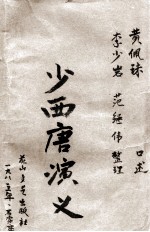 黄佩珠 口述
李少岩 范继伟 整理
少西唐演义
花山文艺出版社
一九八五年·石家庄